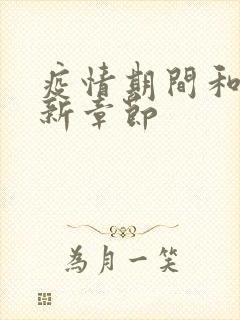 疫情期間和
新章節
為月一笑